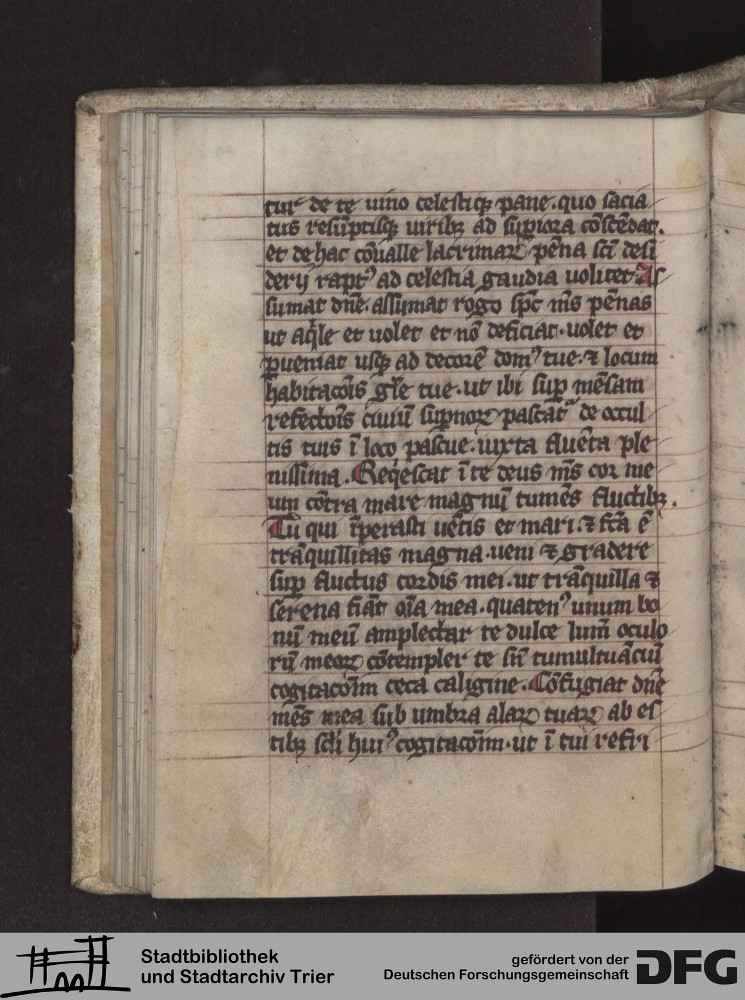 tur de te uino celestiqꝫ pane. quo sacia
tus resūptisqꝫ uiribꝫ ad suꝑiora cōscēdat.
et de hac cōualle lacrimaꝝ pēna sc̄i desi
derij rapt᷒ ad celestia gaudia uolitet. As
sumat dn̄e. assumat rogo sp̄c m̄s pēnas
ut aq̍le et uolet et nō deficiat. uolet et
ꝑueniat usqꝫ ad decorē dom᷒ tue. ⁊ locum
habitacōis gl̄e tue. ut ibi suꝑ mēsam
refectōis ciuiū suꝑnoꝝ pascat᷑ de occul
tis tuis ī loco pascue. iuxta fluēta ple
nissima. Reqͥescat ī te deus m̄s cor me
um cōtra mare magnū tumēs fluctibꝫ.
Tu qui īperasti uētis et mari. ⁊ fc̄a ē
trāquillitas magna. ueni ⁊ gradere
suꝑ fluctus cordis mei. ut trāquilla ⁊
serena fiāt oīa mea. quaten᷒ unum bo
nū meū amplectar te dulce lum̄ oculo
rū meoꝝ cōtempler te sn̄ tumultuāciū
cogitacōnm ceca caligine. Cōfugiat dn̄e
mēs mea sub umbra alaꝝ tuaꝝ ab es
tibꝫ sc̄li hui᷒ cogitacōnm. ut ī tui refri
Stadtbibliothek
und Stadtarchiv Trier
gefördert von der
Deutschen Forschungsgemeinschaft
DFG